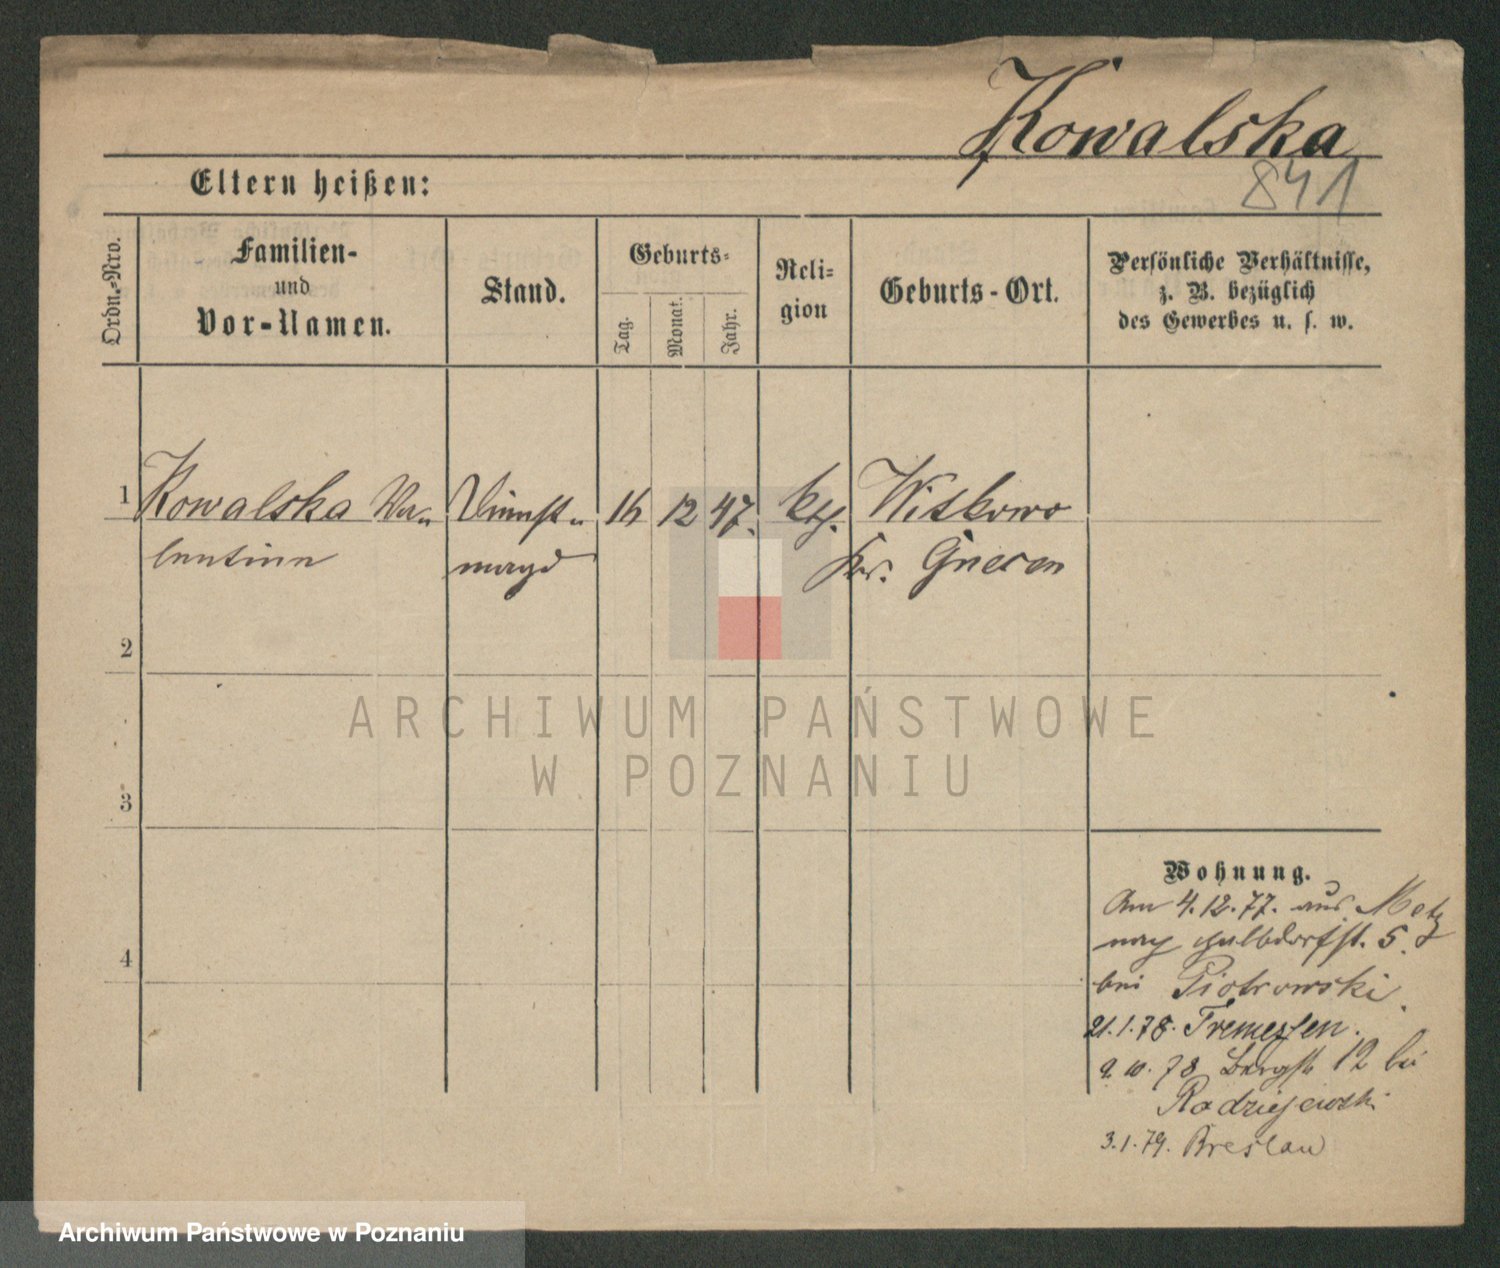 Kowalska
841
Eltern heißen:
Ordn.-Nro.
Familien-
und
Vor-Namen.
Stand.
Geburts-
Tag.
Monat.
Jahr.
Reli-
gion
Geburts-Ort.
Persönliche Verhältnisse,
z. B. bezüglich
des Gewerbes u. s. w.
1 Kowalska Va- Dienst- 16 12 47. kth. Witkowo
lentine magd Kr. Gnesen
2
3
4
Wohnung.
Am 4.12.77. aus Metz
nach Halbdorfst. 5.
bei Piotrowski.
21.1.78. Tremessen.
9.10.78 Bergstr 12 bei
Radziejewski
3.1.79. Breslau
ARCHIWUM PAŃSTWOWE
W POZNANIU
Archiwum Państwowe w Poznaniu